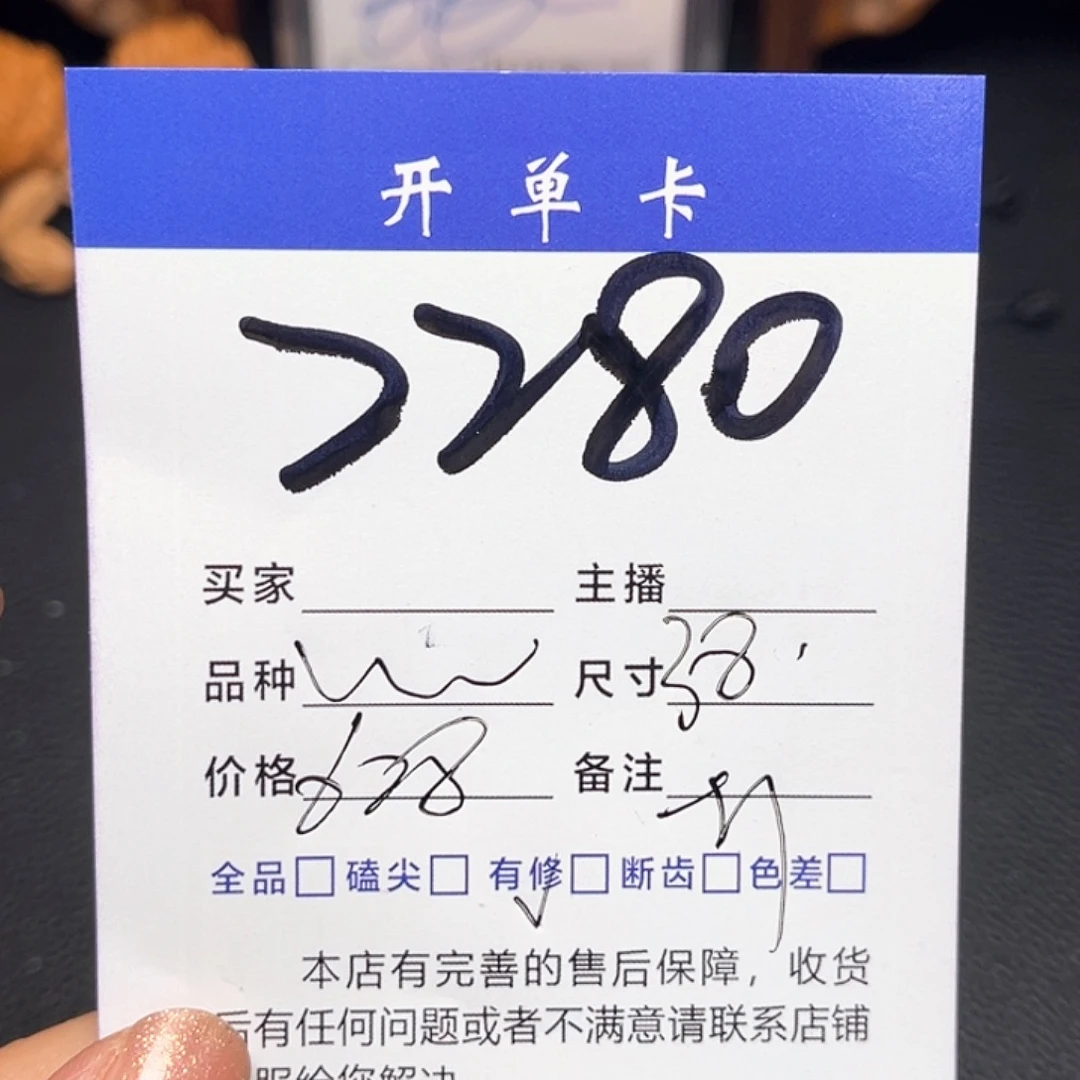 开单卡
2280
买家 主播
品种 尺寸 38
价格 628 备注
全品 磕尖 有修 断齿 色差
本店有完善的售后保障，收货
后有任何问题或者不满意请联系店铺
服给您解决